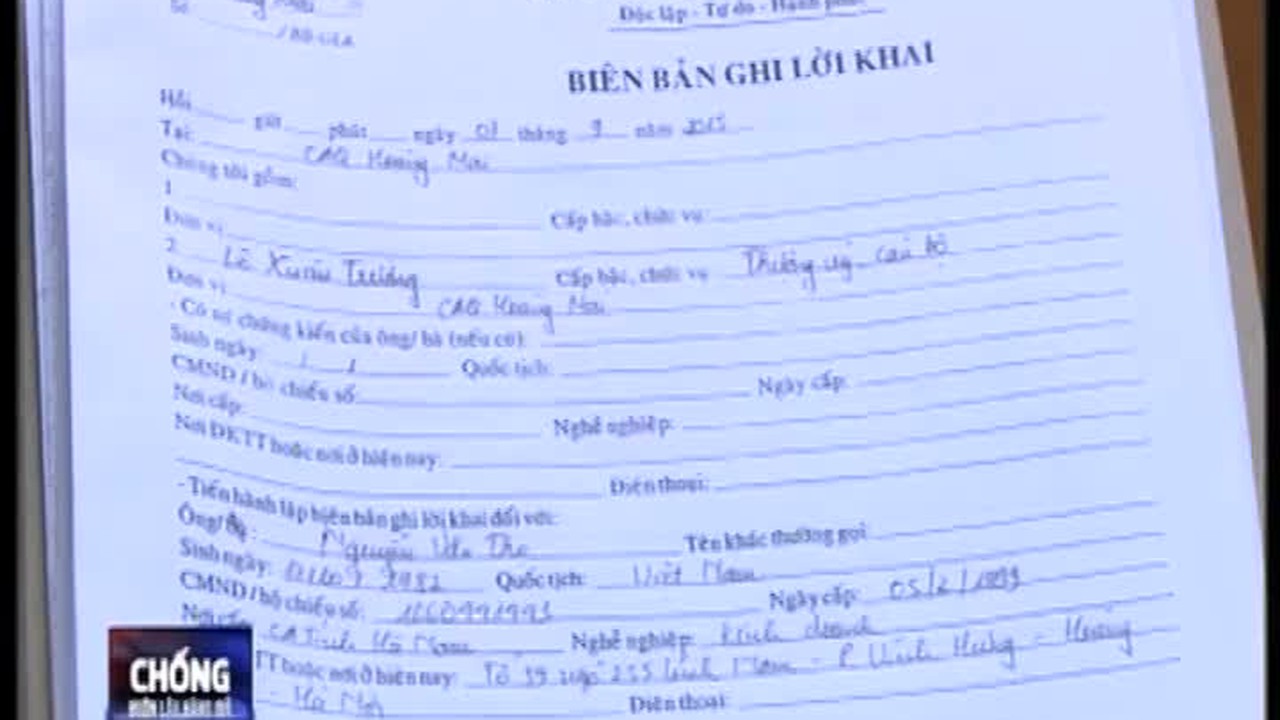 Độc lập - Tự do - Hạnh phúc
Số /BB-GLK
BIÊN BẢN GHI LỜI KHAI
Hồi giờ phút ngày 07 tháng 9 năm 2015
Tại: CAQ Hoàng Mai
Chúng tôi gồm:
1 Cấp bậc, chức vụ:
Đơn vị
2 Lê Xuân Trường Cấp bậc, chức vụ Thượng uý, cán bộ
Đơn vị CAQ Hoàng Mai
- Có sự chứng kiến của ông/ bà (nếu có):
Sinh ngày: / / Quốc tịch:
CMND / hộ chiếu số: Ngày cấp:
Nơi cấp: Nghề nghiệp:
Nơi ĐKTT hoặc nơi ở hiện nay:
Điện thoại:
- Tiến hành lập biên bản ghi lời khai đối với:
Ông/ bà: Nguyễn Văn Tên khác thường gọi
Sinh ngày: Quốc tịch: Việt Nam
CMND / hộ chiếu số: Ngày cấp: 05/2/1999
Nơi cấp CA Tỉnh Hà Nam Nghề nghiệp: Kinh doanh
TT hoặc nơi ở hiện nay: Tổ 39 ngõ 255 Lĩnh Nam - P. Vĩnh Hưng - Hoàng
- Hà Nội Điện thoại:
CHỐNG